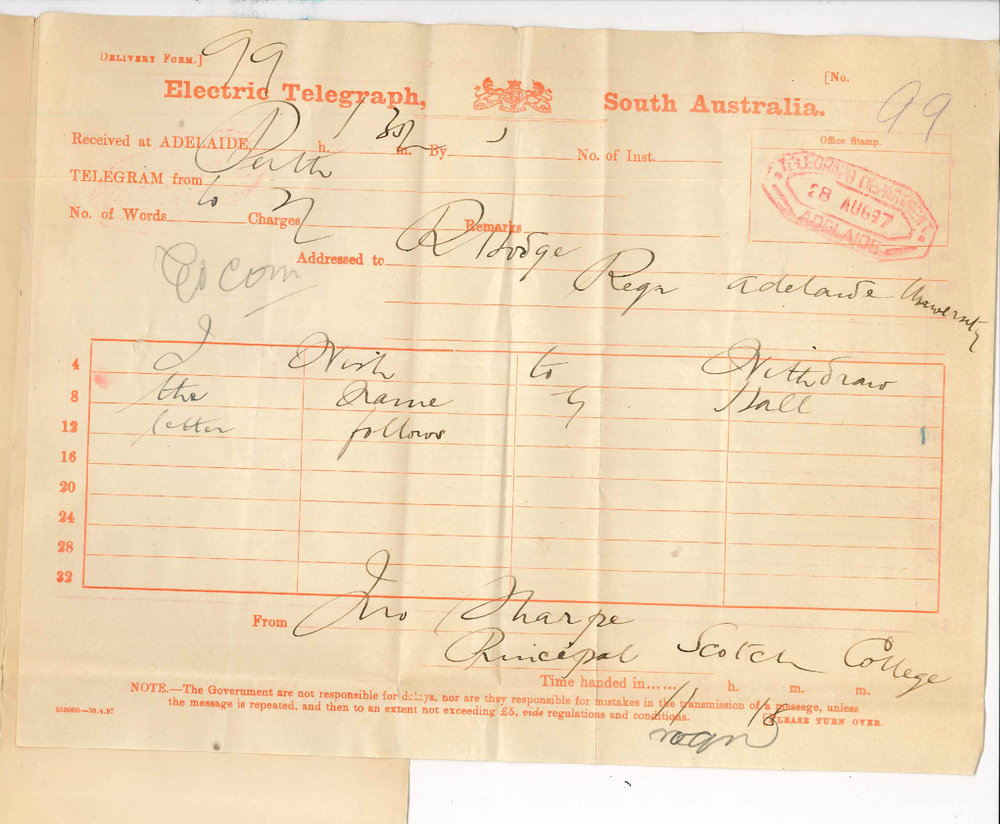 DELIVERY FORM.] 99 [No. 99
Electric Telegraph, South Australia.
Received at ADELAIDE, 1 h. 32 m. By No. of Inst.
Office Stamp.
TELEGRAPH DEPARTMENT
28 AUG 97
ADELAIDE
TELEGRAM from Perth
to
No. of Words Charges Remarks
Addressed to R Hodge
Regr Adelaide University
Ed com
4 I Wish to Withdraw
8 the name of Hall
12 letter follows
16
20
24
28
32
From Jno Sharpe
Principal Scotch College
Time handed in...... 11 h. 18 m. m.
NOTE.—The Government are not responsible for delays, nor are they responsible for mistakes in the transmission of a message, unless
the message is repeated, and then to an extent not exceeding £5, vide regulations and conditions.
350000—30.4.97
PLEASE TURN OVER.